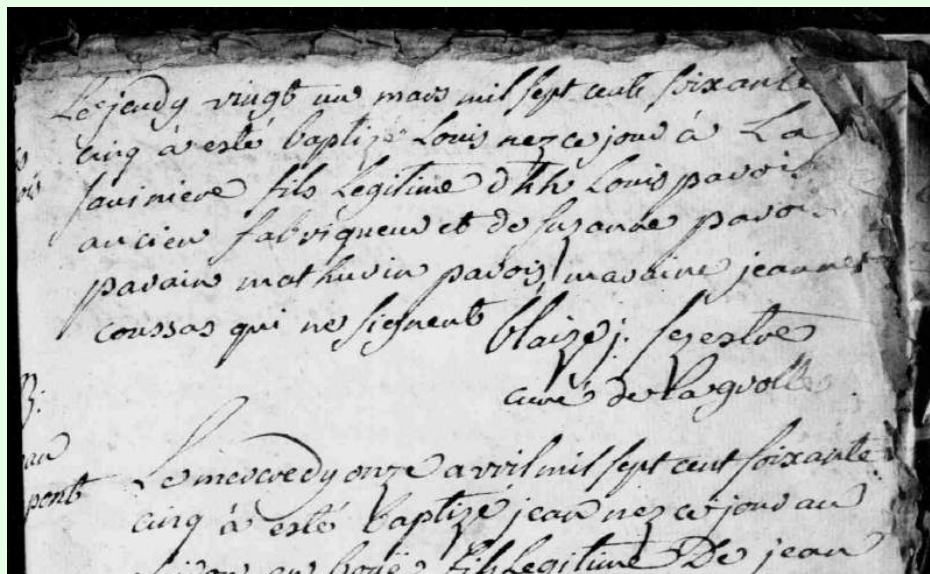 Le jeudy vingt un mars mil sept cent soixante
cinq à esté baptizé Louis nez ce jour à La
fils Legitime d'hh Louis pavois
ancien fabriqueur et de suzanne pavois
parain mathurin pavois, maraine jeanne
coussas qui ne signent blaize j. sezestre
curé de la grolle
B:
Le mercredy onze avril mil sept cent soixante
pont
cinq à esté baptizé jean nez ce jour au
fils Legitime De jean